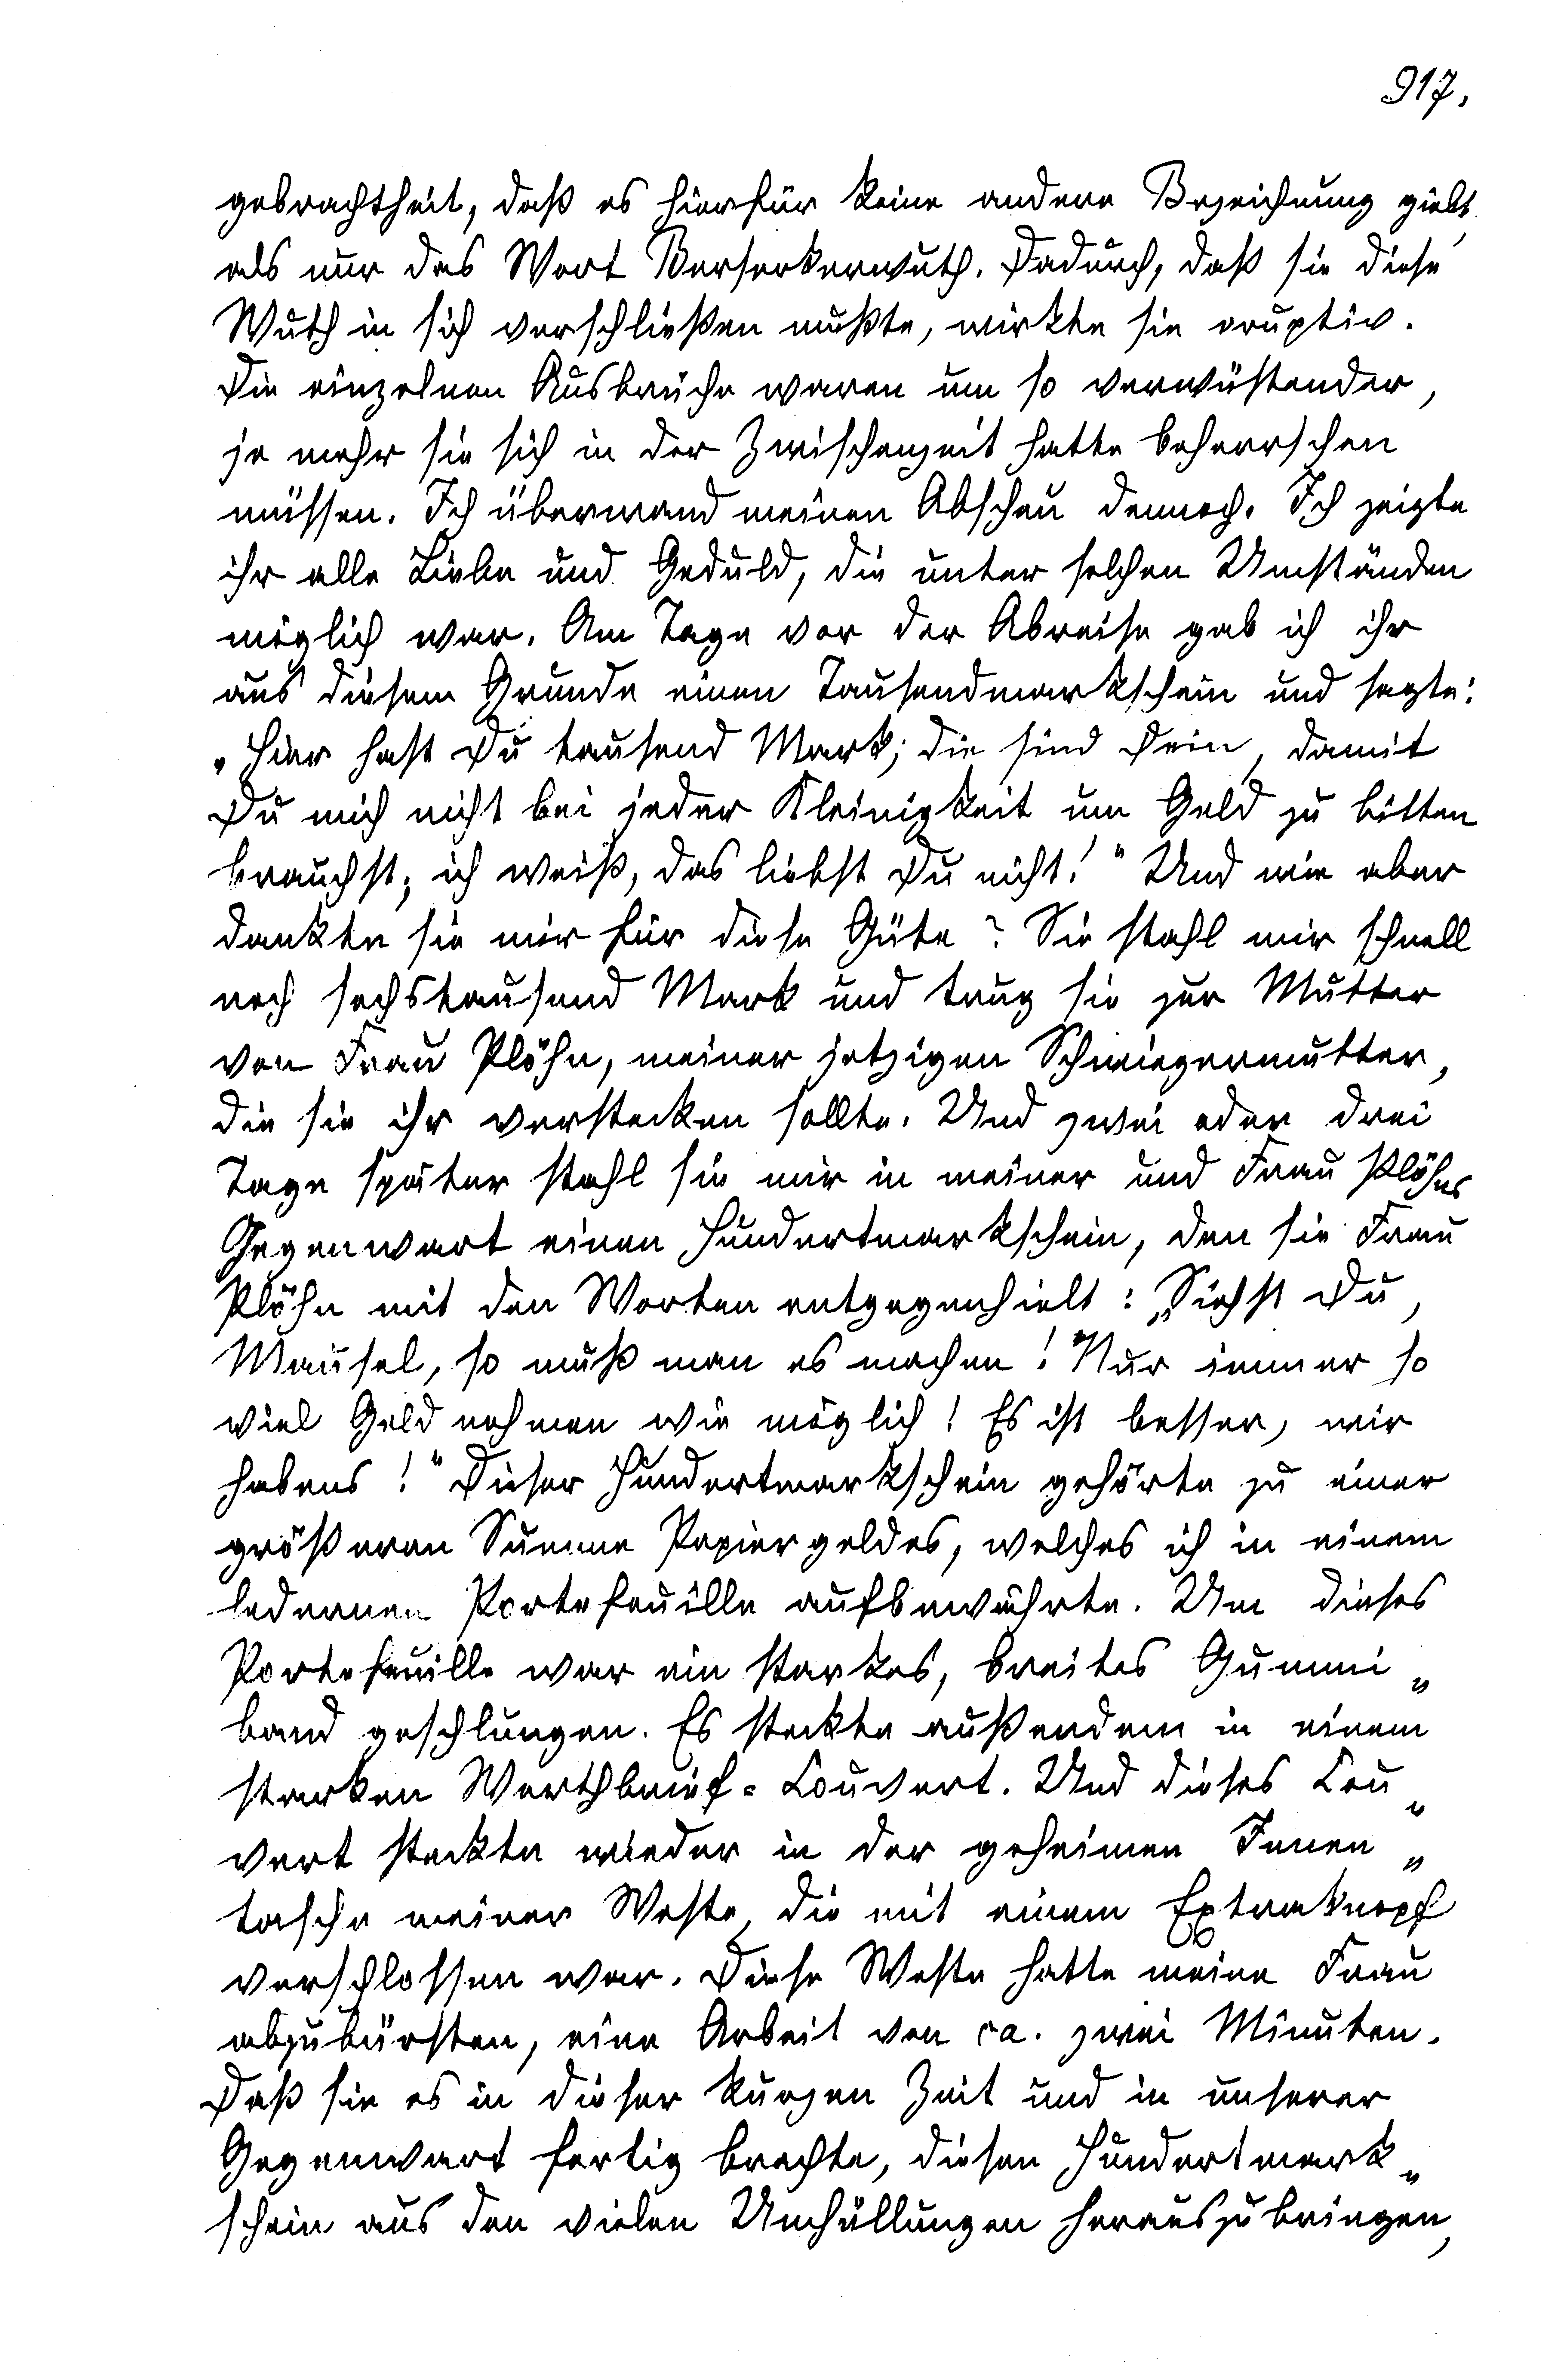 917.
gebrachtheit, daß es hierfür keine andere Bezeichnung giebt,
als nur das Wort Berserkerwuth. Dadurch, daß sie diese
Wuth in sich verschließen mußte, wirkte sie eruptiv.
Die einzelnen Ausbrüche waren um so verwüstender,
je mehr sie sich in der Zwischenzeit hatte beherrschen
müssen. Ich überwand meinen Abscheu dennoch. Ich zeigte
ihr alle Liebe und Geduld, die unter solchen Umständen
möglich war. Am Tage vor der Abreise gab ich ihr
aus diesem Grunde einen Tausendmarkschein und sagte:
„Hier hast Du tausend Mark; die sind Dein, damit
Du mich nicht bei jeder Kleinigkeit um Geld zu bitten
brauchst; ich weiß, das liebst Du nicht!" Und wie aber
dankte sie mir für diese Güte? Sie stahl mir schnell
noch sechstausend Mark und trug sie zur Mutter
von Frau Plöhn, meiner jetzigen Schwiegermutter,
die sie ihr verstecken sollte. Und zwei oder drei
Tage später stahl sie mir in meiner und Frau Plöhns
Gegenwart einen Hundertmarkschein, den sie Frau
Plöhn mit den Worten entgegenhielt: „Siehst Du,
Mausel, so muß man es machen! Nur immer so
viel Geld nehmen wie möglich! Es ist besser, wir
habens!" Dieser Hundertmarkschein gehörte zu einer
größeren Summe Papiergeldes, welches ich in einem
ledernen Portefeuille aufbewahrte. Um dieses
Portefeuille war ein starkes, breites Gummi„
band geschlungen. Es steckte außerdem in einem
starken Werthbrief-Couvert. Und dieses Cou„
vert steckte wieder in der geheimen Innen„
tasche meiner Weste, die mit einem Extraknopf
verschlossen war. Diese Weste hatte meine Frau
abzubürsten, eine Arbeit von ca. zwei Minuten.
Daß sie es in dieser kurzen Zeit und in unserer
Gegenwart fertig brachte, diesen Hundertmark„
schein aus den vielen Umhüllungen herauszubringen,